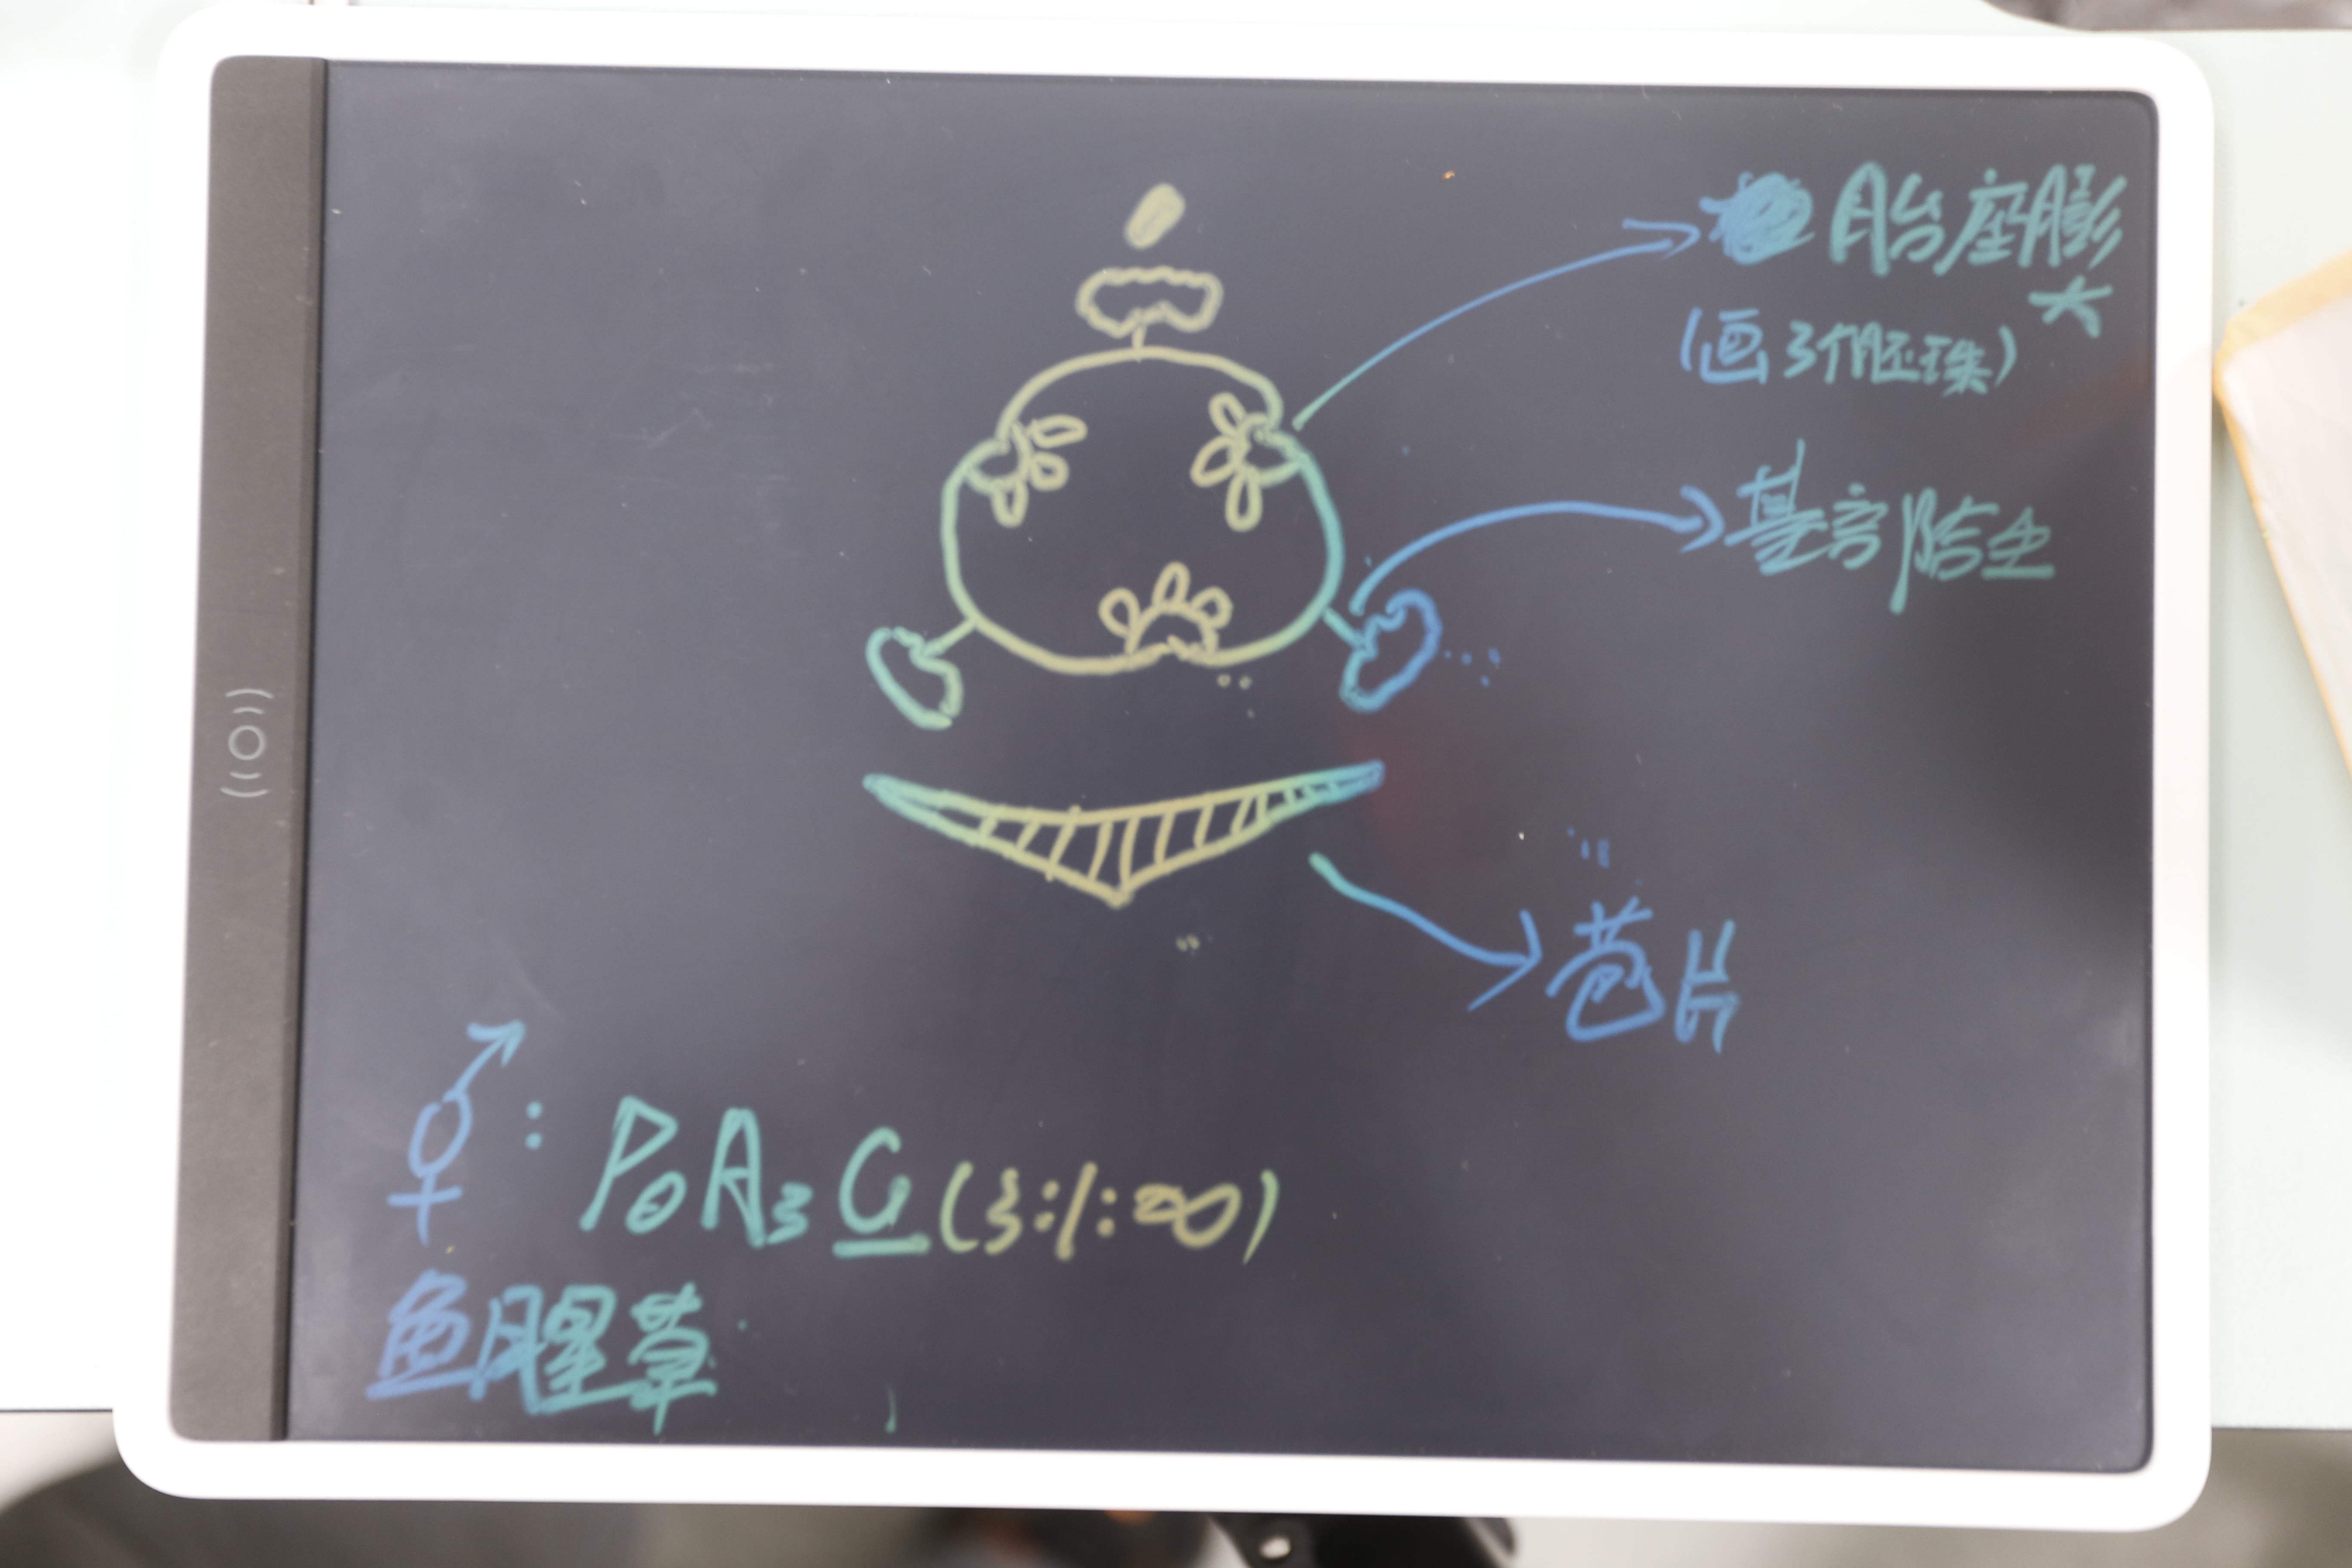 胎座膨
大
(画3个胚珠)
基部贴生
苞片
⚥: P₀A₃G̲(3:1:∞)
鱼腥草